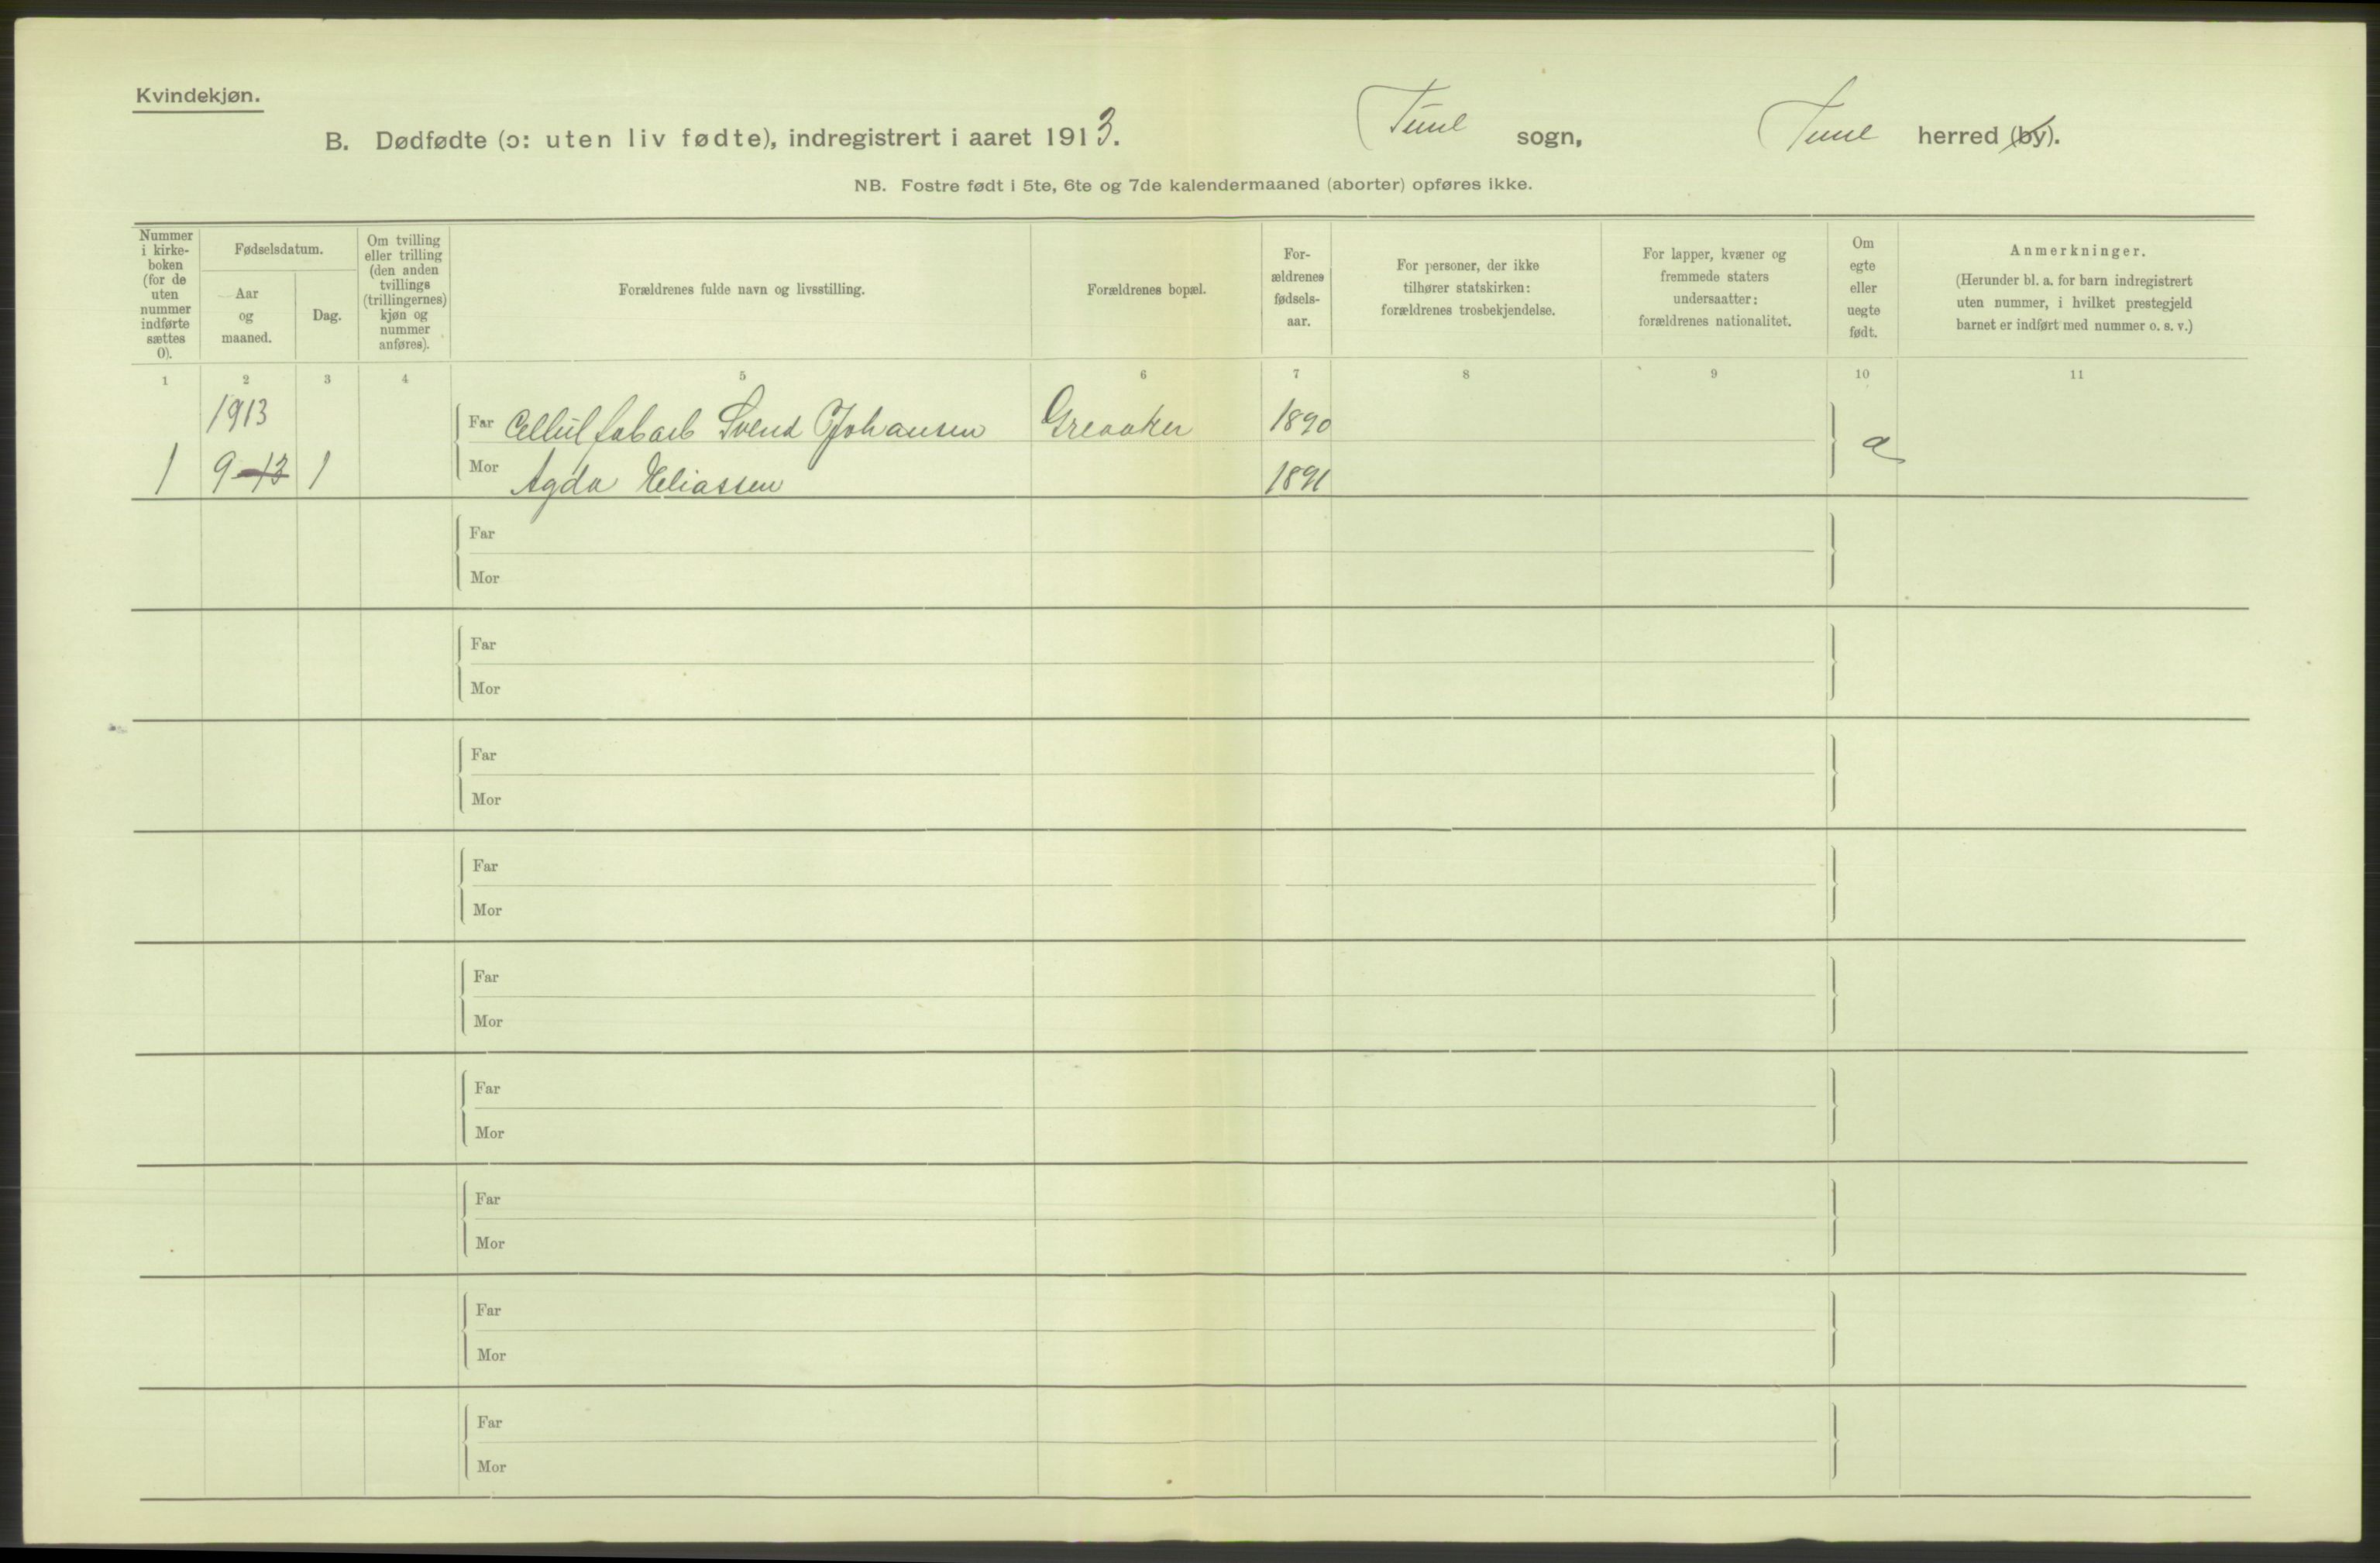 Kvindekjøn.
B. Dødfødte (ɔ: uten liv fødte), indregistrert i aaret 1913. Tune sogn, Tune herred (by).
NB. Fostre født i 5te, 6te og 7de kalendermaaned (aborter) opføres ikke.
Nummer
i kirke-
boken
(for de
uten
nummer
indførte
sættes
0).
Fødselsdatum.
Aar
og
maaned.
Dag.
Om tvilling
eller trilling
(den anden
tvillings
(trillingernes)
kjøn og
nummer
anføres).
Forældrenes fulde navn og livsstilling.
Forældrenes bopæl.
For-
ældrenes
fødsels-
aar.
For personer, der ikke
tilhører statskirken:
forældrenes trosbekjendelse.
For lapper, kvæner og
fremmede staters
undersaatter:
forældrenes nationalitet.
Om
egte
eller
uegte
født.
Anmerkninger.
(Herunder bl. a. for barn indregistrert
uten nummer, i hvilket prestegjeld
barnet er indført med nummer o. s. v.)
1 2 3 4 5 6 7 8 9 10 11
1913
Far Cellul fabarb Svend Johansen Greaaker 1890
1 9-13 1 Mor Agda Eliassen 1891
Far
Mor
Far
Mor
Far
Mor
Far
Mor
Far
Mor
Far
Mor
Far
Mor
Far
Mor
Far
Mor